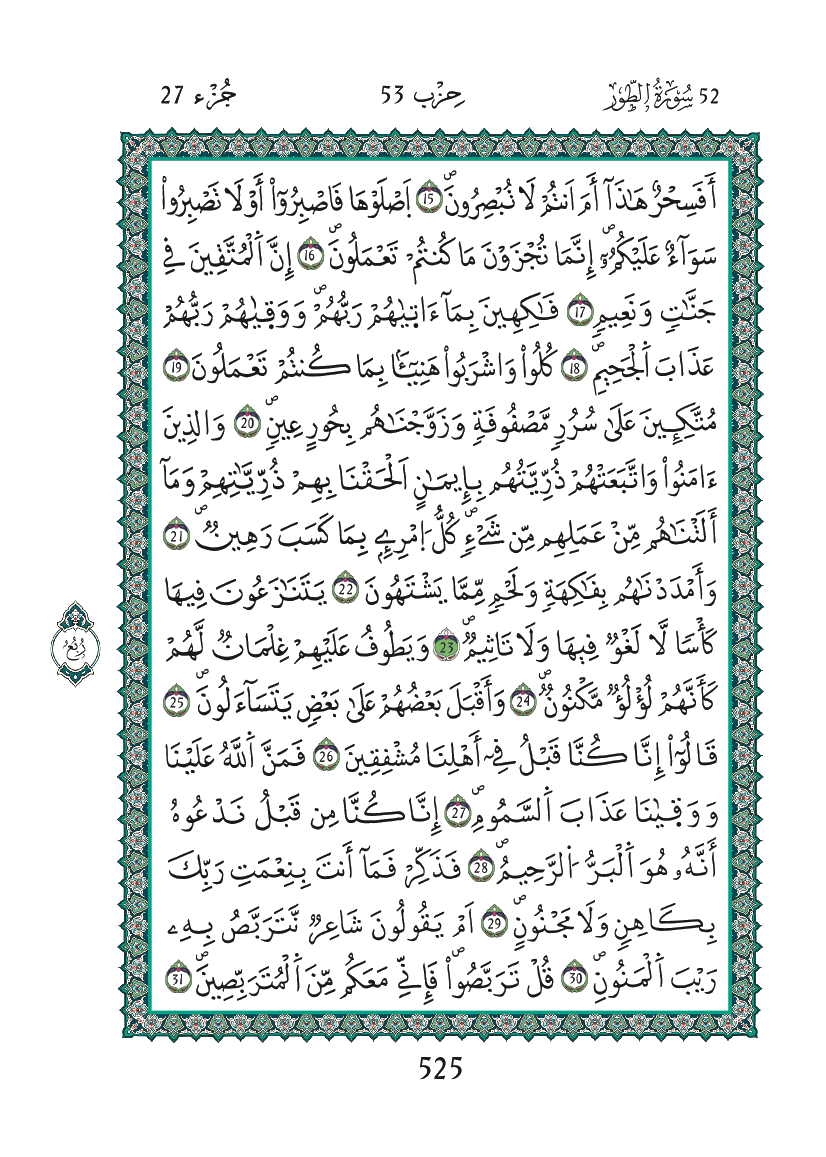 52 سُورَةُ اُ۬لطُّورِ حِزْب 53 جُزْء 27
أَفَسِحْرٌ هَٰذَآ أَمَ اَنتُمْ لَا تُبْصِرُونَۖ 15 اَ۪صْلَوْهَا فَاصْبِرُوٓاْ أَوْ لَا تَصْبِرُواْ
سَوَآءٌ عَلَيْكُمُۥٓۖ إِنَّمَا تُجْزَوْنَ مَا كُنتُمْ تَعْمَلُونَۖ 16 إِنَّ اَ۬لْمُتَّقِينَ فِے
جَنَّٰتٖ وَنَعِيمٖ 17 فَٰكِهِينَ بِمَآ ءَات۪يٰهُمْ رَبُّهُمْۖ وَوَق۪يٰهُمْ رَبُّهُمْ
عَذَابَ اَ۬لْجَحِيمِۖ 18 كُلُواْ وَاشْرَبُواْ هَنِيٓـٔاَۢ بِمَا كُنتُمْ تَعْمَلُونَ 19
مُتَّكِـِٕينَ عَلَىٰ سُرُرٖ مَّصْفُوفَةٖ وَزَوَّجْنَٰهُم بِحُورٍ عِينٖۖ 20 وَالذِينَ
ءَامَنُواْ وَاتَّبَعَتْهُمْ ذُرِّيَّتُهُم بِإِيمَٰنٍ اَلْحَقْنَا بِهِمْ ذُرِّيَّٰتِهِمْ وَمَآ
أَلَتْنَٰهُم مِّنْ عَمَلِهِم مِّن شَےْءٖۖ كُلُّ اُ۪مْرِےِٕۢ بِمَا كَسَبَ رَهِينٞۖ 21
وَأَمْدَدْنَٰهُم بِفَٰكِهَةٖ وَلَحْمٖ مِّمَّا يَشْتَهُونَ 22 يَتَنَٰزَعُونَ فِيهَا
كَأْساٗ لَّا لَغْوٞ فِيهَا وَلَا تَاثِيمٞۖ 23 وَيَطُوفُ عَلَيْهِمْ غِلْمَانٞ لَّهُمْ
كَأَنَّهُمْ لُؤْلُؤٞ مَّكْنُونٞۖ 24 وَأَقْبَلَ بَعْضُهُمْ عَلَىٰ بَعْضٖ يَتَسَآءَلُونَۖ 25
قَالُوٓاْ إِنَّا كُنَّا قَبْلُ فِےٓ أَهْلِنَا مُشْفِقِينَ 26 فَمَنَّ اَ۬للَّهُ عَلَيْنَا
وَوَق۪يٰنَا عَذَابَ اَ۬لسَّمُومِۖ 27 إِنَّا كُنَّا مِن قَبْلُ نَدْعُوهُ
أَنَّهُۥ هُوَ اَ۬لْبَرُّ اُ۬لرَّحِيمُۖ 28 فَذَكِّرْ فَمَآ أَنتَ بِنِعْمَتِ رَبِّكَ
بِكَاهِنٖ وَلَا مَجْنُونٍۖ 29 اَمْ يَقُولُونَ شَاعِرٞ نَّتَرَبَّصُ بِهِۦ
رَيْبَ اَ۬لْمَنُونِۖ 30 قُلْ تَرَبَّصُواْۖ فَإِنِّے مَعَكُم مِّنَ اَ۬لْمُتَرَبِّصِينَۖ 31
رُبُعُ
525